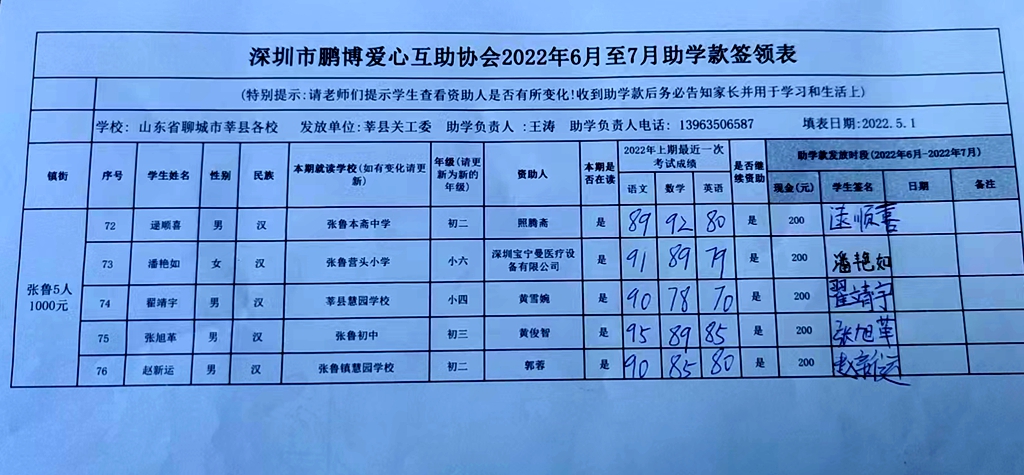 深圳市鹏博爱心互助协会2022年6月至7月助学款签领表
(特别提示:请老师们提示学生查看资助人是否有所变化!收到助学款后务必告知家长并用于学习和生活上)
学校: 山东省聊城市莘县各校 发放单位:莘县关工委 助学负责人 :王涛 助学负责人电话: 13963506587 填表日期:2022.5.1
镇街 序号 学生姓名 性别 民族 本期就读学校(如有变化请更新) 年级(请更新为新的年级) 资助人 本期是否在读 2022年上期最近一次考试成绩 是否继续资助 助学款发放时段(2022年6月-2022年7月) 备注
语文 数学 英语 现金(元) 学生签名 日期
张鲁5人 1000元
72 逯顺喜 男 汉 张鲁本斋中学 初二 照腾斋 是 89 92 80 是 200 逯顺喜
73 潘艳如 女 汉 张鲁营头小学 小六 深圳宝宁曼医疗设备有限公司 是 91 89 79 是 200 潘艳如
74 翟靖宇 男 汉 莘县慧园学校 小四 黄雪婉 是 90 78 70 是 200 翟靖宇
75 张旭革 男 汉 张鲁初中 初三 黄俊智 是 95 89 85 是 200 张旭革
76 赵新运 男 汉 张鲁镇慧园学校 初二 郭蓉 是 90 85 80 是 200 赵新运